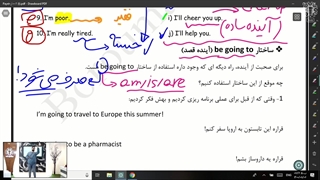 9. I'm poor.
فقیر
i) I'll cheer you up.
آینده ساده
10. I'm really tired.
خسته
j) I'll help you.
ساختار be going to (آینده قصد)
برای صحبت از آینده، راه دیگه ای که وجود داره استفاده از ساختار be going to است.
صرف می شود!
am/is/are
چه موقع از این ساختار استفاده کنیم؟
1- وقتی که از قبل برای عملی برنامه ریزی کردیم و بهش فکر کردیم:
I'm going to travel to Europe this summer!
قراره این تابستون به اروپا سفر کنم!
to be a pharmacist
قراره یه داروساز بشم!